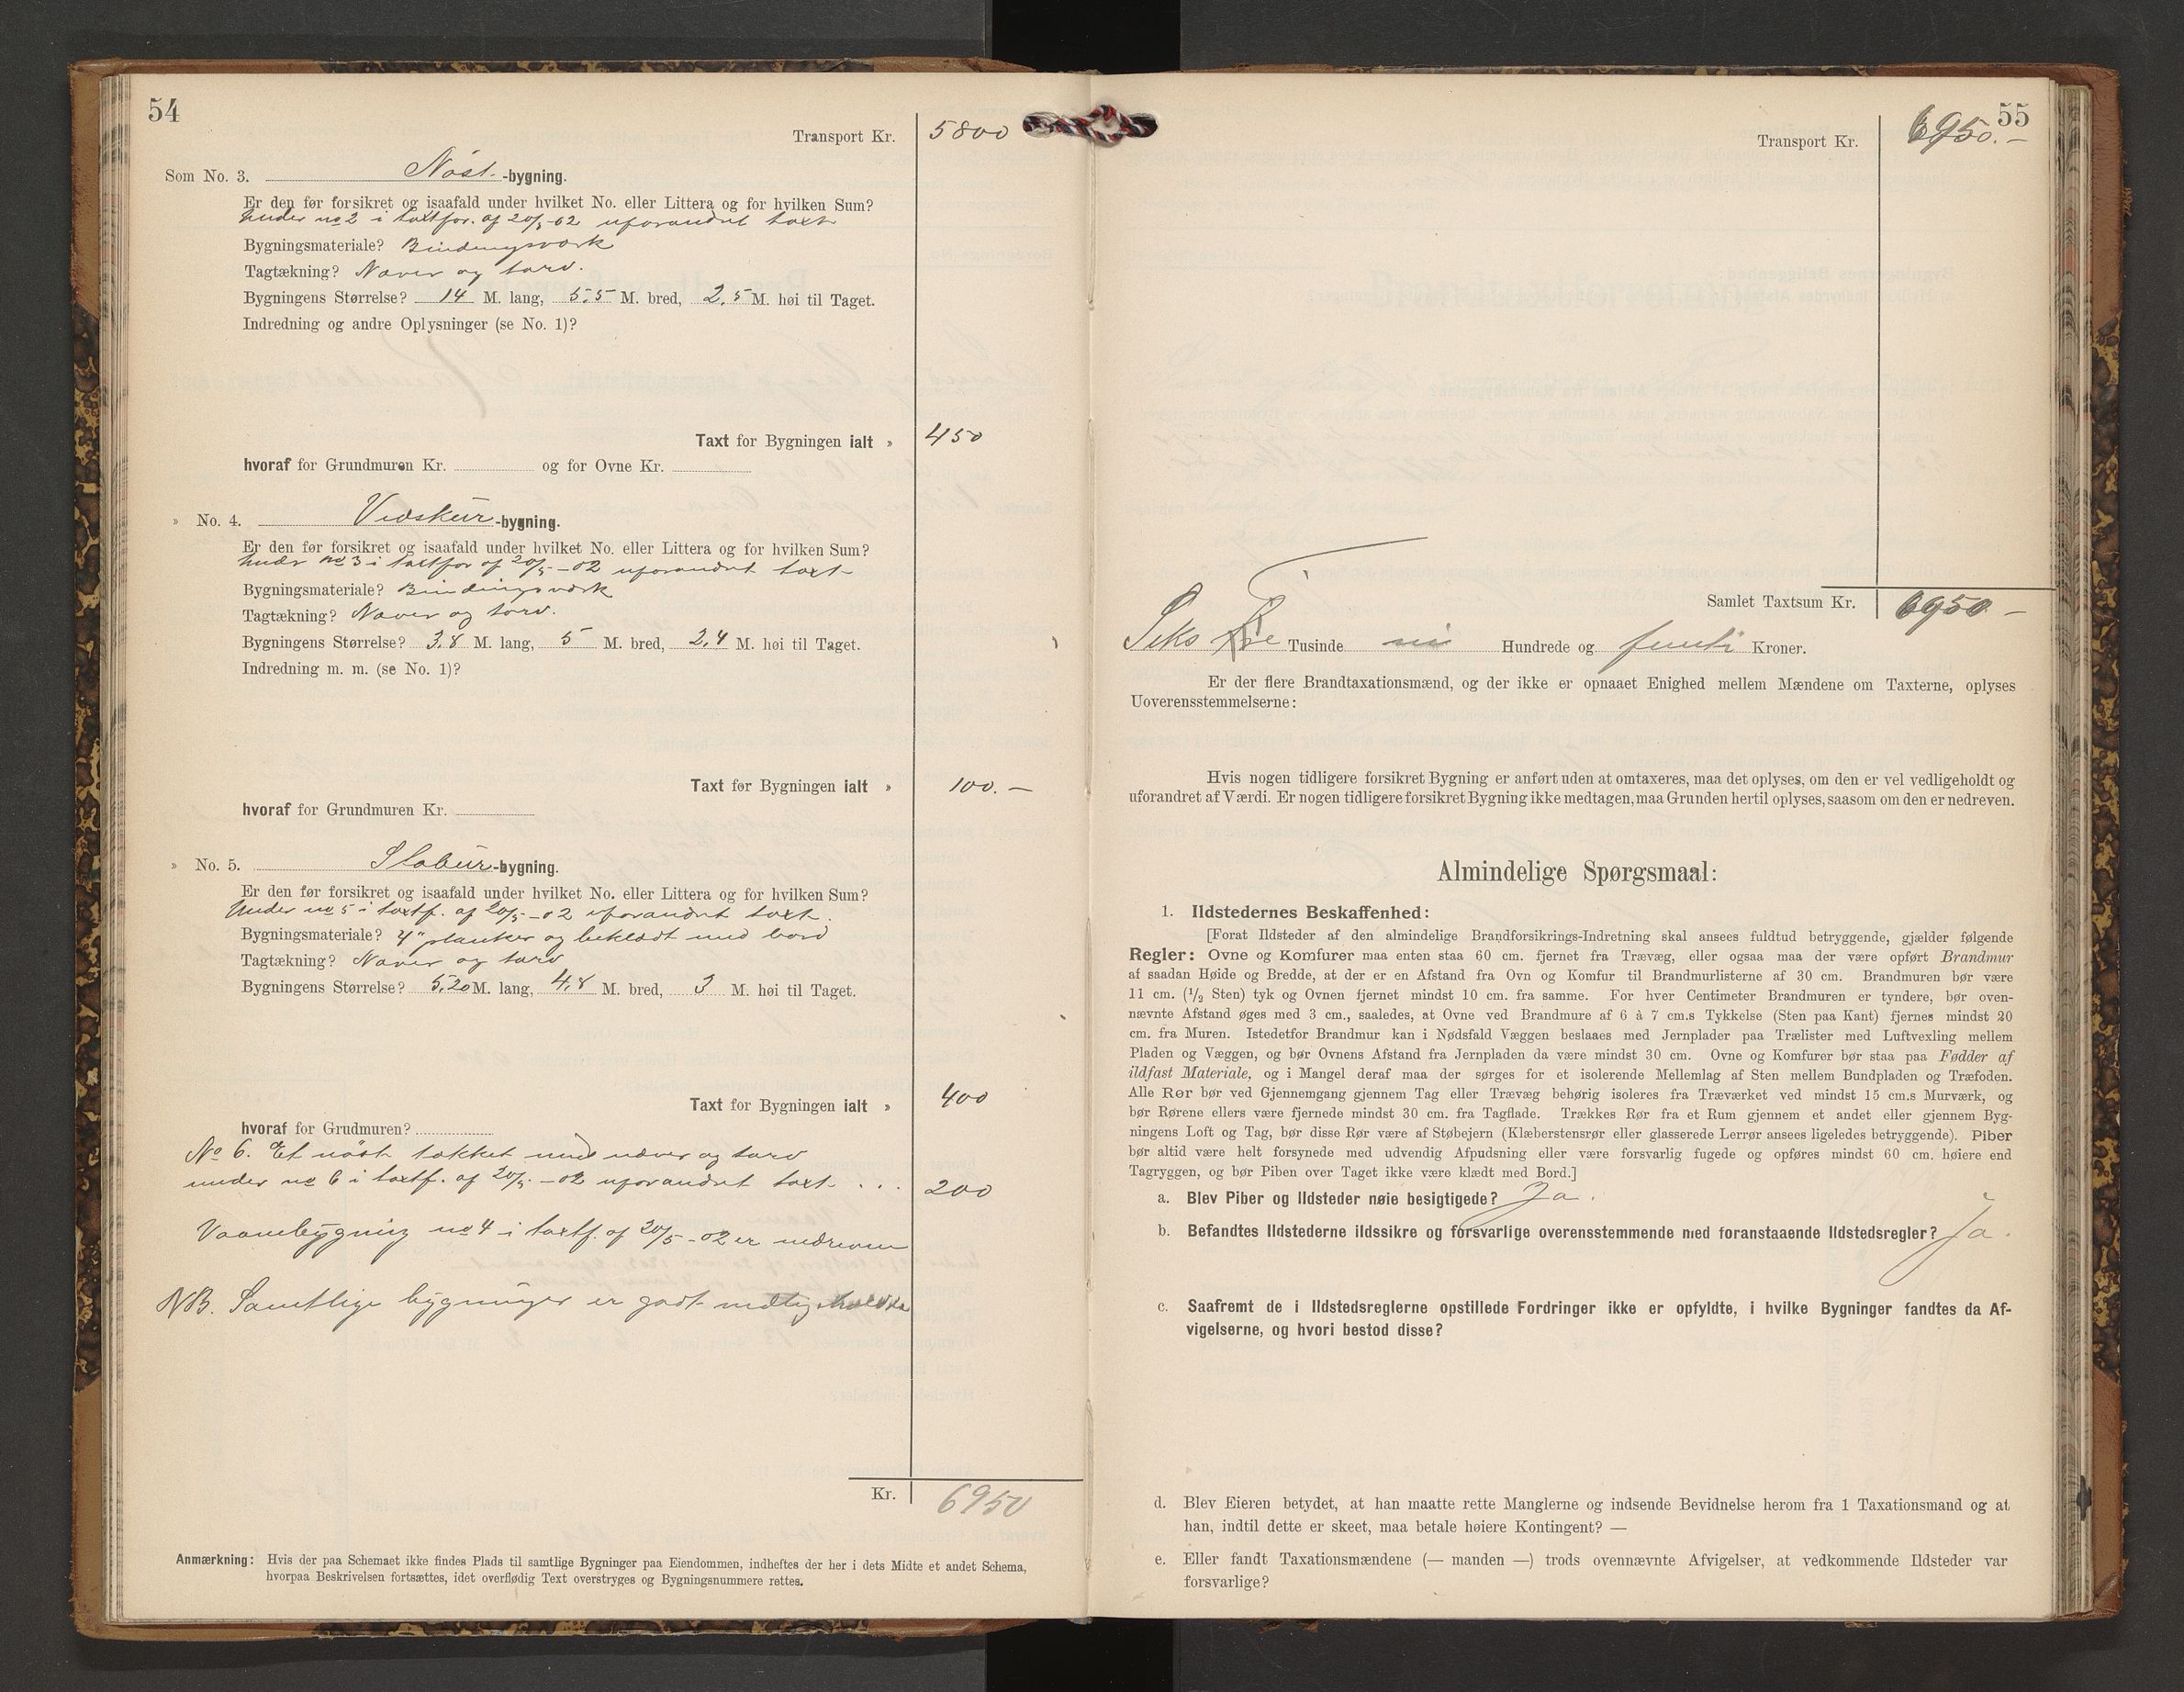 54
Transport Kr. 5800
Som No. 3. Nöst-bygning.
Er den før forsikret og isaafald under hvilket No. eller Littera og for hvilken Sum?
Under no 2 i taxtfor. af 20/5-02 uforandret taxt
Bygningsmateriale? Bindingsværk
Tagtækning? Næver og torv.
Bygningens Størrelse? 14 M. lang, 5.5 M. bred, 2.5 M. høi til Taget.
Indredning og andre Oplysninger (se No. 1)?
Taxt for Bygningen ialt » 450
hvoraf for Grundmuren Kr. og for Ovne Kr.
» No. 4. Vedskur-bygning.
Er den før forsikret og isaafald under hvilket No. eller Littera og for hvilken Sum?
Under no 3 i taxtfor af 20/5-02 uforandret taxt
Bygningsmateriale? Bindingsværk
Tagtækning? Næver og torv.
Bygningens Størrelse? 3,8 M. lang, 5 M. bred, 2,4 M. høi til Taget.
Indredning m. m. (se No. 1)?
Taxt for Bygningen ialt » 100.—
hvoraf for Grundmuren Kr.
» No. 5. Stabur-bygning.
Er den før forsikret og isaafald under hvilket No. eller Littera og for hvilken Sum?
Under no 5 i taxtf. af 20/5-02 uforandret taxt.
Bygningsmateriale? 4" planker og beklædt med bord
Tagtækning? Næver og torv
Bygningens Størrelse? 5,20 M. lang, 4,8 M. bred, 3 M. høi til Taget.
Taxt for Bygningen ialt » 400
hvoraf for Grudmuren?
No 6. Et nöst tækket med næver og torv
under no 6 i taxtf. af 20/5-02 uforandret taxt . . . 200
Vaanebygning no 4 i taxtf. af 20/5-02 er nedreven
NB. Samtlige bygninger er godt vedligeholdte
Kr. 6950
Anmærkning: Hvis der paa Schemaet ikke findes Plads til samtlige Bygninger paa Eiendommen, indheftes der her i dets Midte et andet Schema,
hvorpaa Beskrivelsen fortsættes, idet overflødig Text overstryges og Bygningsnummere rettes.
55
Transport Kr. 6950.—
Samlet Taxtsum Kr. 6950 —
Seks Tusinde ni Hundrede og femti Kroner.
Er der flere Brandtaxationsmænd, og der ikke er opnaaet Enighed mellem Mændene om Taxterne, oplyses
Uoverensstemmelserne:
Hvis nogen tidligere forsikret Bygning er anført uden at omtaxeres, maa det oplyses, om den er vel vedligeholdt og
uforandret af Værdi. Er nogen tidligere forsikret Bygning ikke medtagen, maa Grunden hertil oplyses, saasom om den er nedreven.
Almindelige Spørgsmaal:
1. Ildstedernes Beskaffenhed:
[Forat Ildsteder af den almindelige Brandforsikrings-Indretning skal ansees fuldtud betryggende, gjælder følgende
Regler: Ovne og Komfurer maa enten staa 60 cm. fjernet fra Trævæg, eller ogsaa maa der være opført Brandmur
af saadan Høide og Bredde, at der er en Afstand fra Ovn og Komfur til Brandmurlisterne af 30 cm. Brandmuren bør være
11 cm. (1/2 Sten) tyk og Ovnen fjernet mindst 10 cm. fra samme. For hver Centimeter Brandmuren er tyndere, bør oven-
nævnte Afstand øges med 3 cm., saaledes, at Ovne ved Brandmure af 6 à 7 cm.s Tykkelse (Sten paa Kant) fjernes mindst 20
cm. fra Muren. Istedetfor Brandmur kan i Nødsfald Væggen beslaaes med Jernplader paa Trælister med Luftvexling mellem
Pladen og Væggen, og bør Ovnens Afstand fra Jernpladen da være mindst 30 cm. Ovne og Komfurer bør staa paa Fødder af
ildfast Materiale, og i Mangel deraf maa der sørges for et isolerende Mellemlag af Sten mellem Bundpladen og Træfoden.
Alle Rør bør ved Gjennemgang gjennem Tag eller Trævæg behørig isoleres fra Træværket ved mindst 15 cm.s Murværk, og
bør Rørene ellers være fjernede mindst 30 cm. fra Tagflade. Trækkes Rør fra et Rum gjennem et andet eller gjennem Byg-
ningens Loft og Tag, bør disse Rør være af Støbejern (Klæberstensrør eller glasserede Lerrør ansees ligeledes betryggende). Piber
bør altid være helt forsynede med udvendig Afpudsning eller være forsvarlig fugede og opføres mindst 60 cm. høiere end
Tagryggen, og bør Piben over Taget ikke være klædt med Bord.]
a. Blev Piber og Ildsteder nøie besigtigede? Ja.
b. Befandtes Ildstederne ildssikre og forsvarlige overensstemmende med foranstaaende Ildstedsregler? Ja.
c. Saafremt de i Ildstedsreglerne opstillede Fordringer ikke er opfyldte, i hvilke Bygninger fandtes da Af-
vigelserne, og hvori bestod disse?
d. Blev Eieren betydet, at han maatte rette Manglerne og indsende Bevidnelse herom fra 1 Taxationsmand og at
han, indtil dette er skeet, maa betale høiere Kontingent? —
e. Eller fandt Taxationsmændene (— manden —) trods ovennævnte Afvigelser, at vedkommende Ildsteder var
forsvarlige?